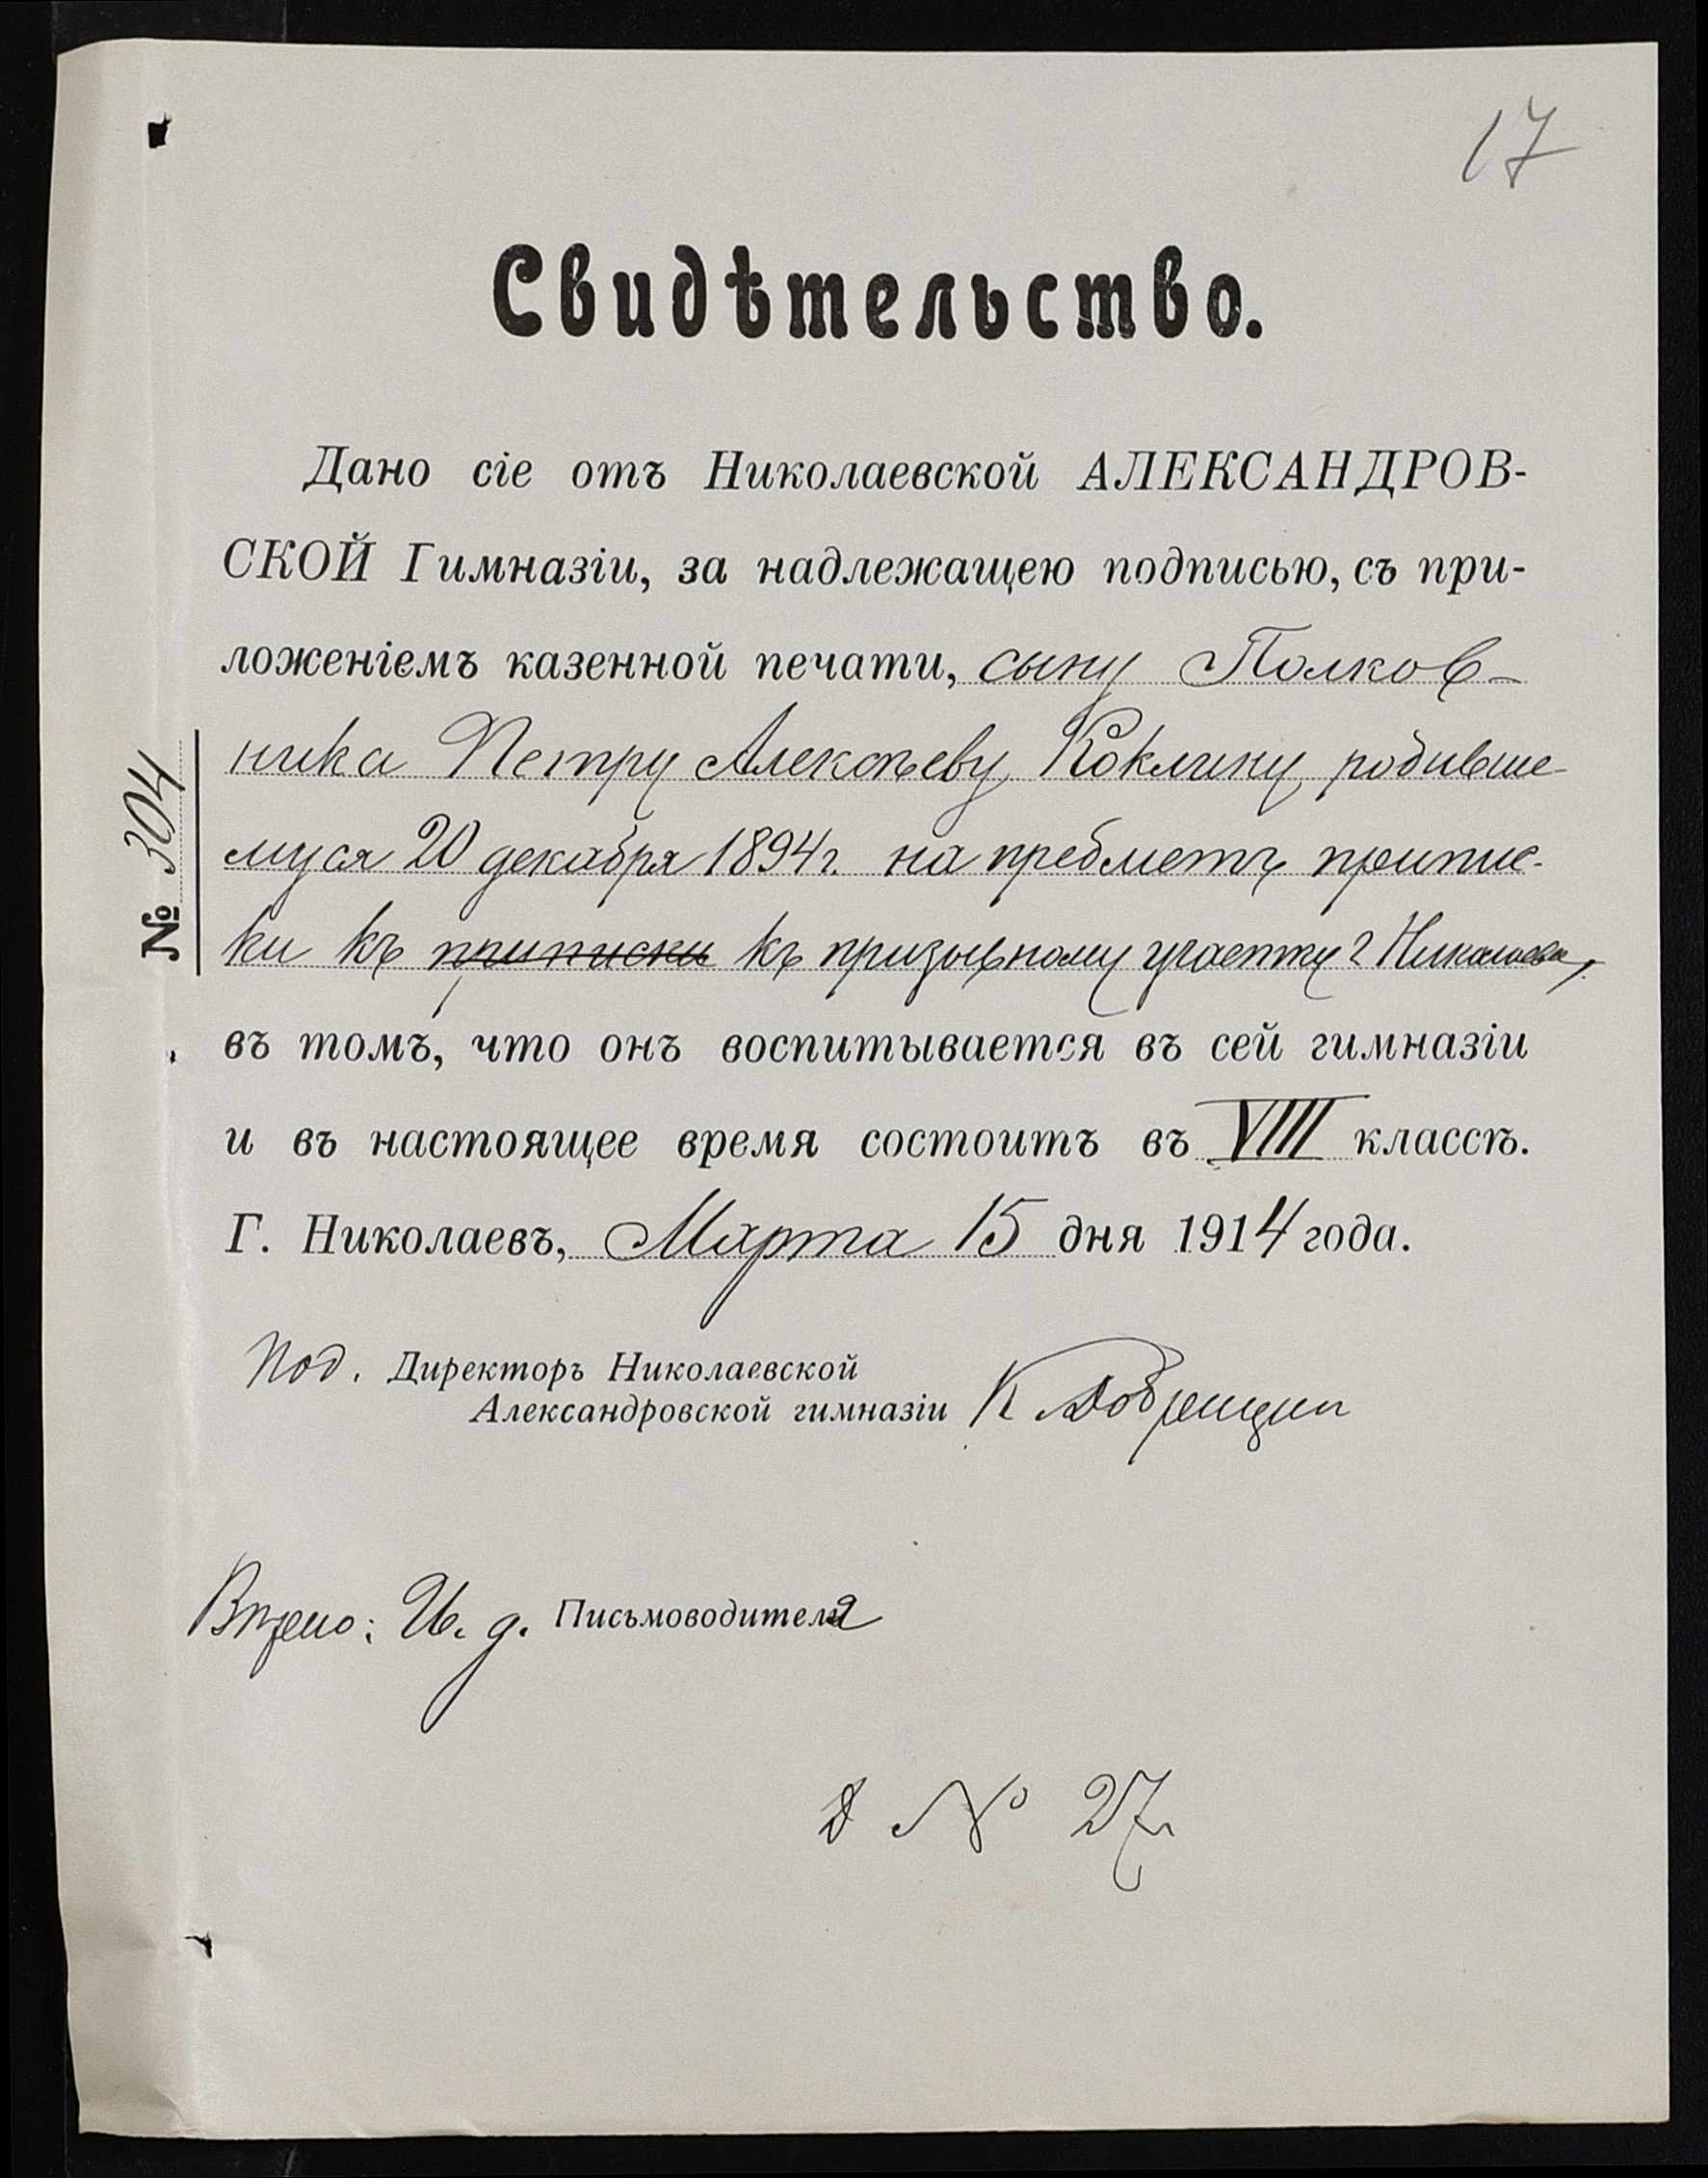 17
Свидѣтельство.
Дано сіе отъ Николаевской АЛЕКСАНДРОВ-
СКОЙ Гимназіи, за надлежащею подписью, съ при-
ложеніемъ казенной печати, сыну Полков-
ника Петру Алексѣеву Коклину родивше-
муся 20 декабря 1894 г. на предметъ припис-
ки къ приписки къ призывному участку г Николаева,
№ 304
въ томъ, что онъ воспитывается въ сей гимназіи
и въ настоящее время состоитъ въ VIII классѣ.
Г. Николаевъ, Марта 15 дня 1914 года.
Под. Директоръ Николаевской
Александровской гимназіи К
Вѣрно: И. д. Письмоводителя
Д № 27